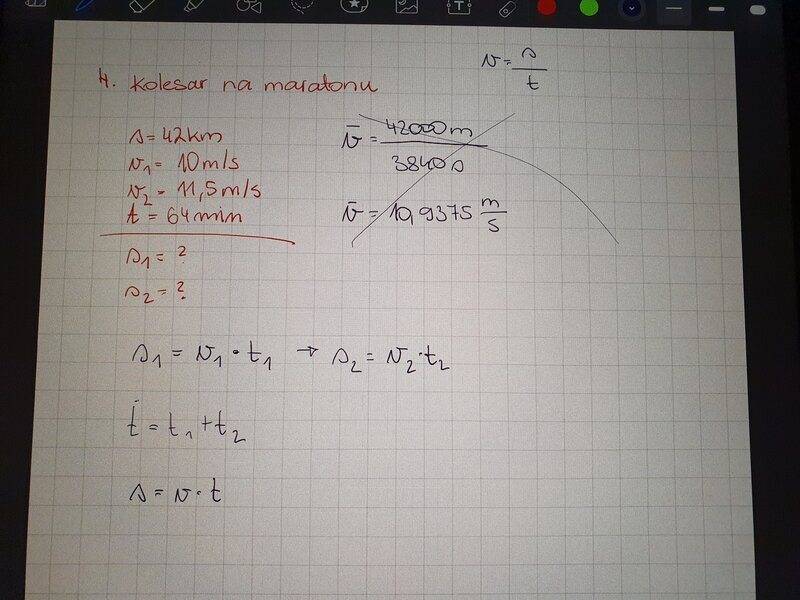 v = s/t
4. Kolesar na maratonu
s = 42 km
v₁ = 10 m/s
v₂ = 11,5 m/s
t = 64 min
s₁ = ?
s₂ = ?
v̄ = 42000 m / 3840 s
v̄ = 10,9375 m/s
s₁ = v₁ · t₁ → s₂ = v₂ · t₂
t = t₁ + t₂
s = v · t